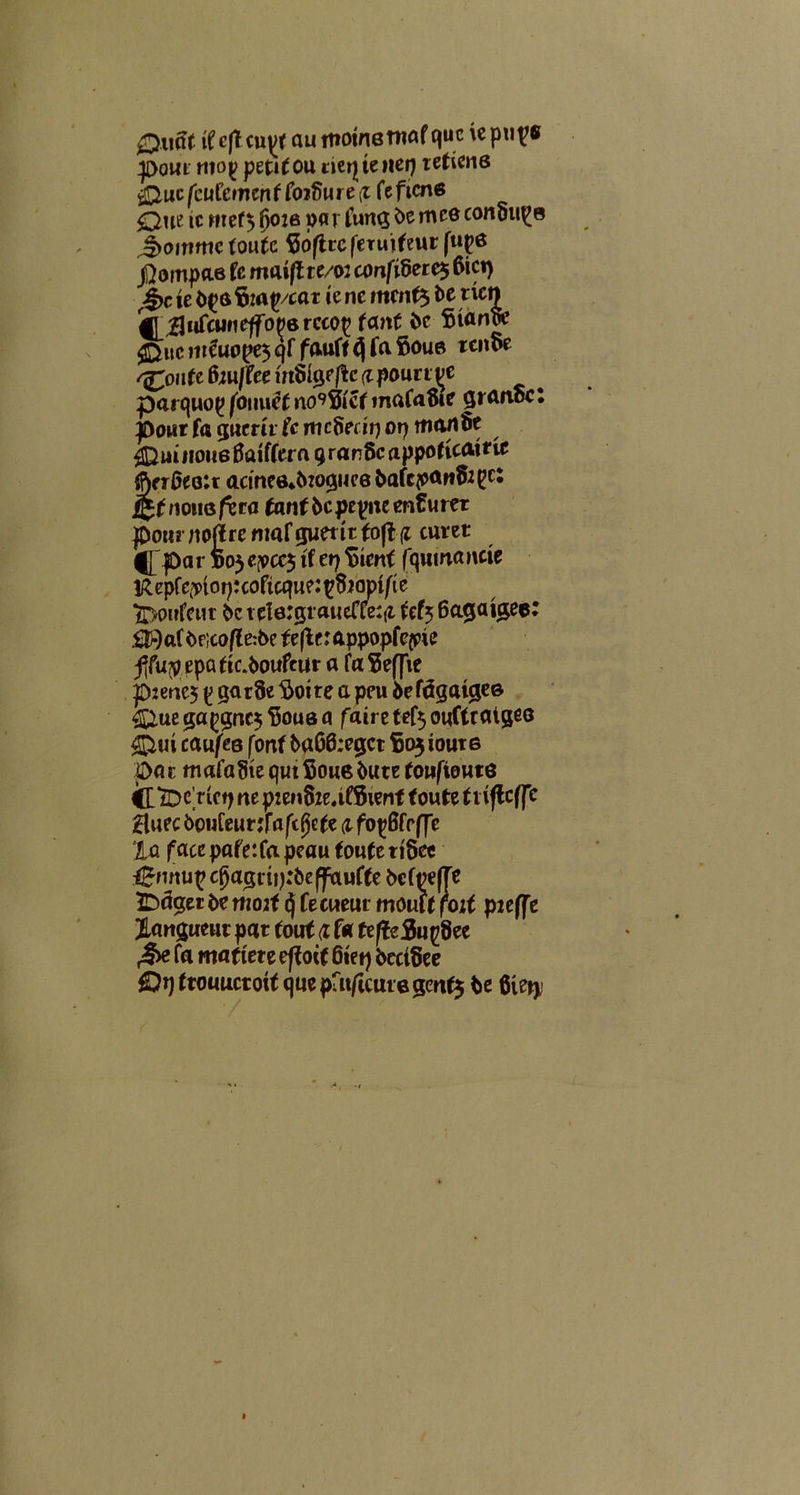 Quāt il est cuyt au moins mal que ie puys
Pour moy petit ou riē ie nen retiens
Que seulement lordure & le siens
Que ic metz hors par lung de mes conduys
Somme toute vostre seruiteur suys
Nompas le maistre/or considerez bien
Se ie dys vray/car ie ne mentz de rien
¶ Aulcuneffoys recoy tant de viande
Que mēuoyez ql fault q̄ la vous rende
Toute bruslee indigeste & pourrye
Parquoy souuēt noꝰ vict maladie grande:
Pour la guerir le medecin on mande
Qui nous baillera grande appoticairie
Herbes:r acines.drogues dalexandrye:
Et nous fera tant de peyne endurer
Pour nostre mal guerir tost & curer
¶ Par voz exces il en vient squinancie
Replexion:colicque:ydropisie
Douleur de reis:grauelle:& telz bagaiges:
Mal de icoste:de teste:appoplexie
Flux epatic.douleur a la vessie
Prenez y garde voire a peu de lāgaiges
Que gaygnez vous a faire telz oultraiges
Qui causes sont dabbreger voz iours
Par maladie qui vous dure tousiours
¶ De rien ne prendre.il vient toute tristesse
Auec douleur:laschete & foyblesse
La face pale:la peau toute ridee
Ennuy chagrin:deffaulte de lyesse
Dāger de mort q̄ le cueur moult fort presse
Langueur par tout & la teste vuydee
Se la matiere estoit bien decidee
On trouueroit que plusieurs gentz de bien